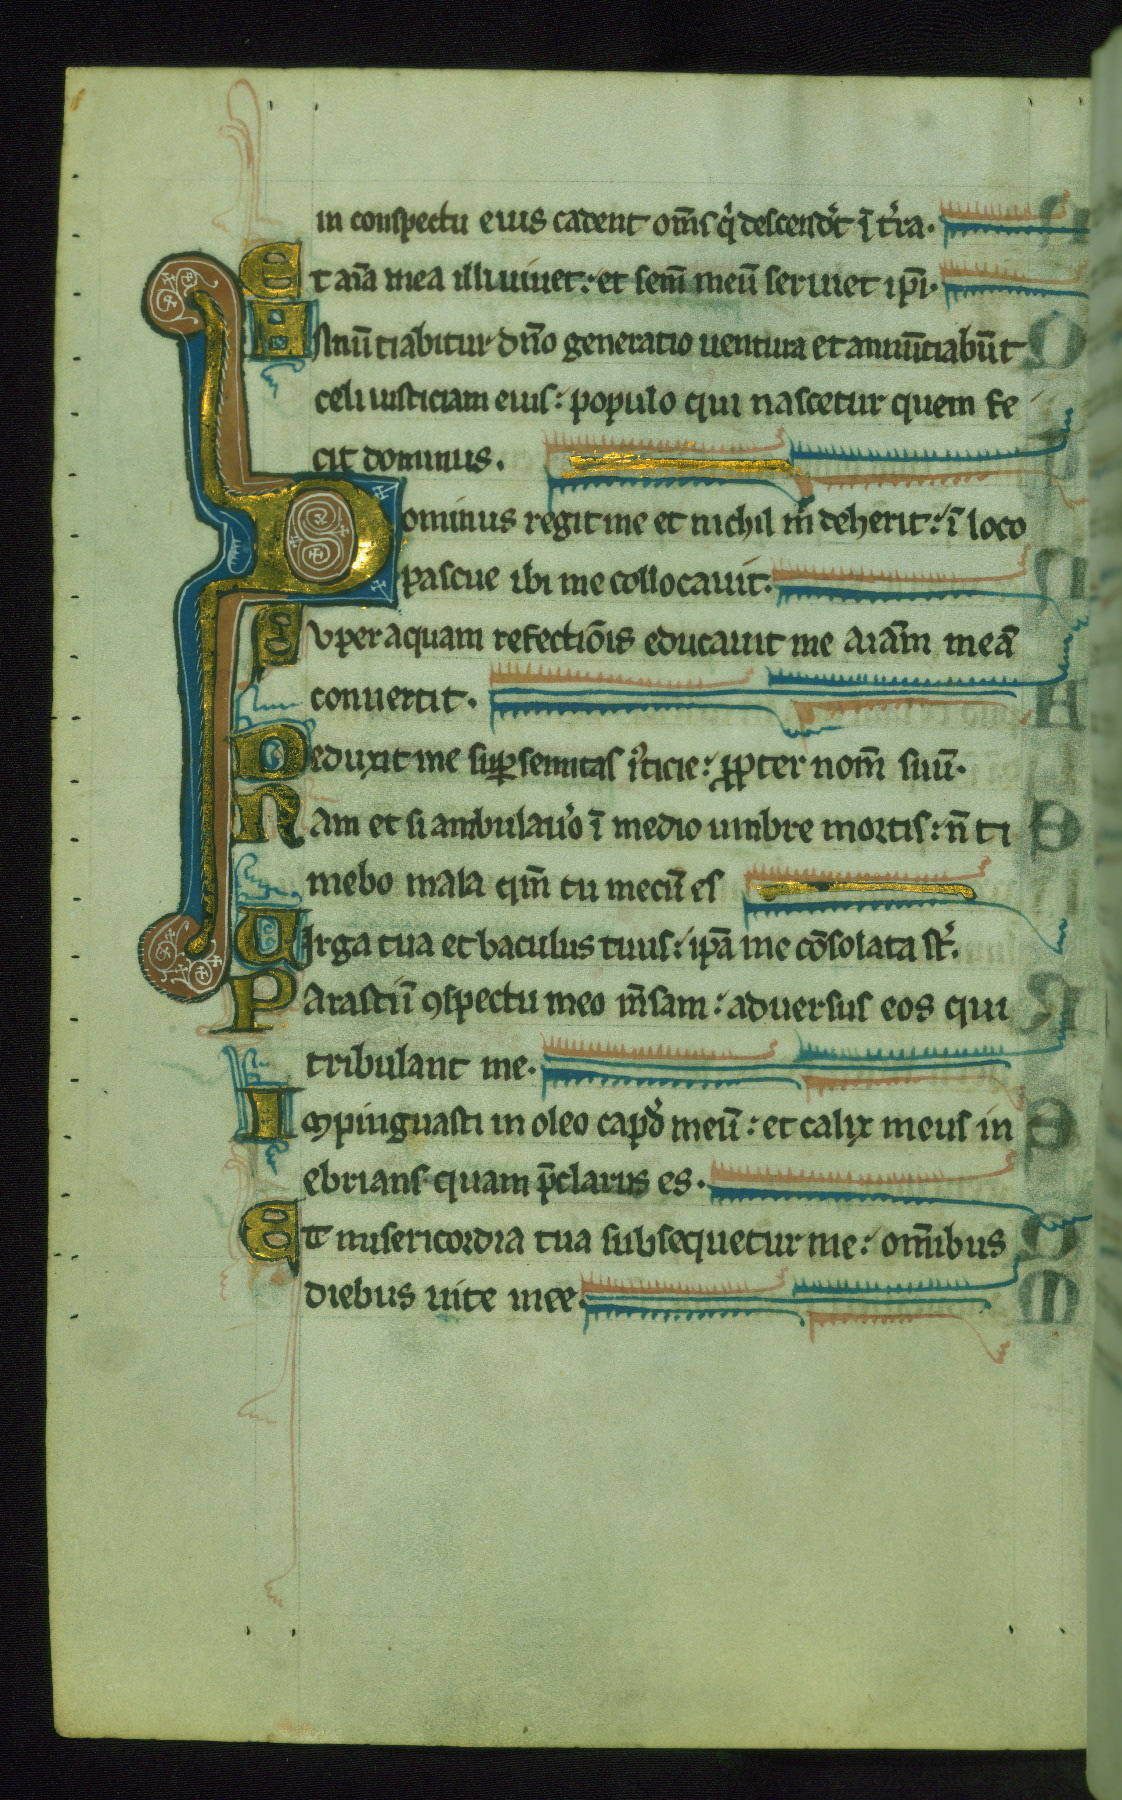 in conspectu eius cadent om̄s q̇ descend̾t ī t̾ra.
Et aīa mea illi uiuet: et sem̄ meū seruiet ip̄i.
Annūtiabitur dn̄o generatio uentura et annūtiabūt
celi iusticiam eius: populo qui nascetur quem fe
cit dominus.
Dominus regit me et nichil m̄ deherit: ī loco
pascue ibi me collocauit.
Super aquam refectiōis educauit me aīam meā
conuertit.
Deduxit me sup̱ semitas i̾ticie: ꝓpter nom̄ suū.
Nam et si ambulau̾o ī medio umbre mortis: n̄ ti
mebo mala qm̄ tu mecū es
Uirga tua et baculus tuus: ip̄a me cōsolata st̾.
Parastiī ꝯspectu meo m̄sam: aduersus eos qui
tribulant me.
Impinguasti in oleo capđ meū: et calix meus in
ebrians quam p̄clarus es.
Et misericordia tua subsequetur me: om̄ibus
diebus uite mee.